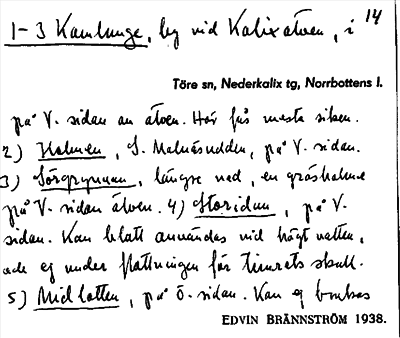 1-3 Kamlunge, by vid Kalixälven, i 14
Töre sn, Nederkalix tg, Norrbottens l.
på V. sidan av älven. Här fås mesta siken.
2) Holmen, S. Malmösudden, på V. sidan.
3) Sörgrynnan, längre ned, en gräsholme
på V. sidan älven. 4) Storidan, på V.
sidan. Kan blott användas vid högt vatten,
och ej under flottningen för timrets skull.
5) Midlotten, på Ö. sidan. Kan ej brukas
EDVIN BRÄNNSTRÖM 1938.